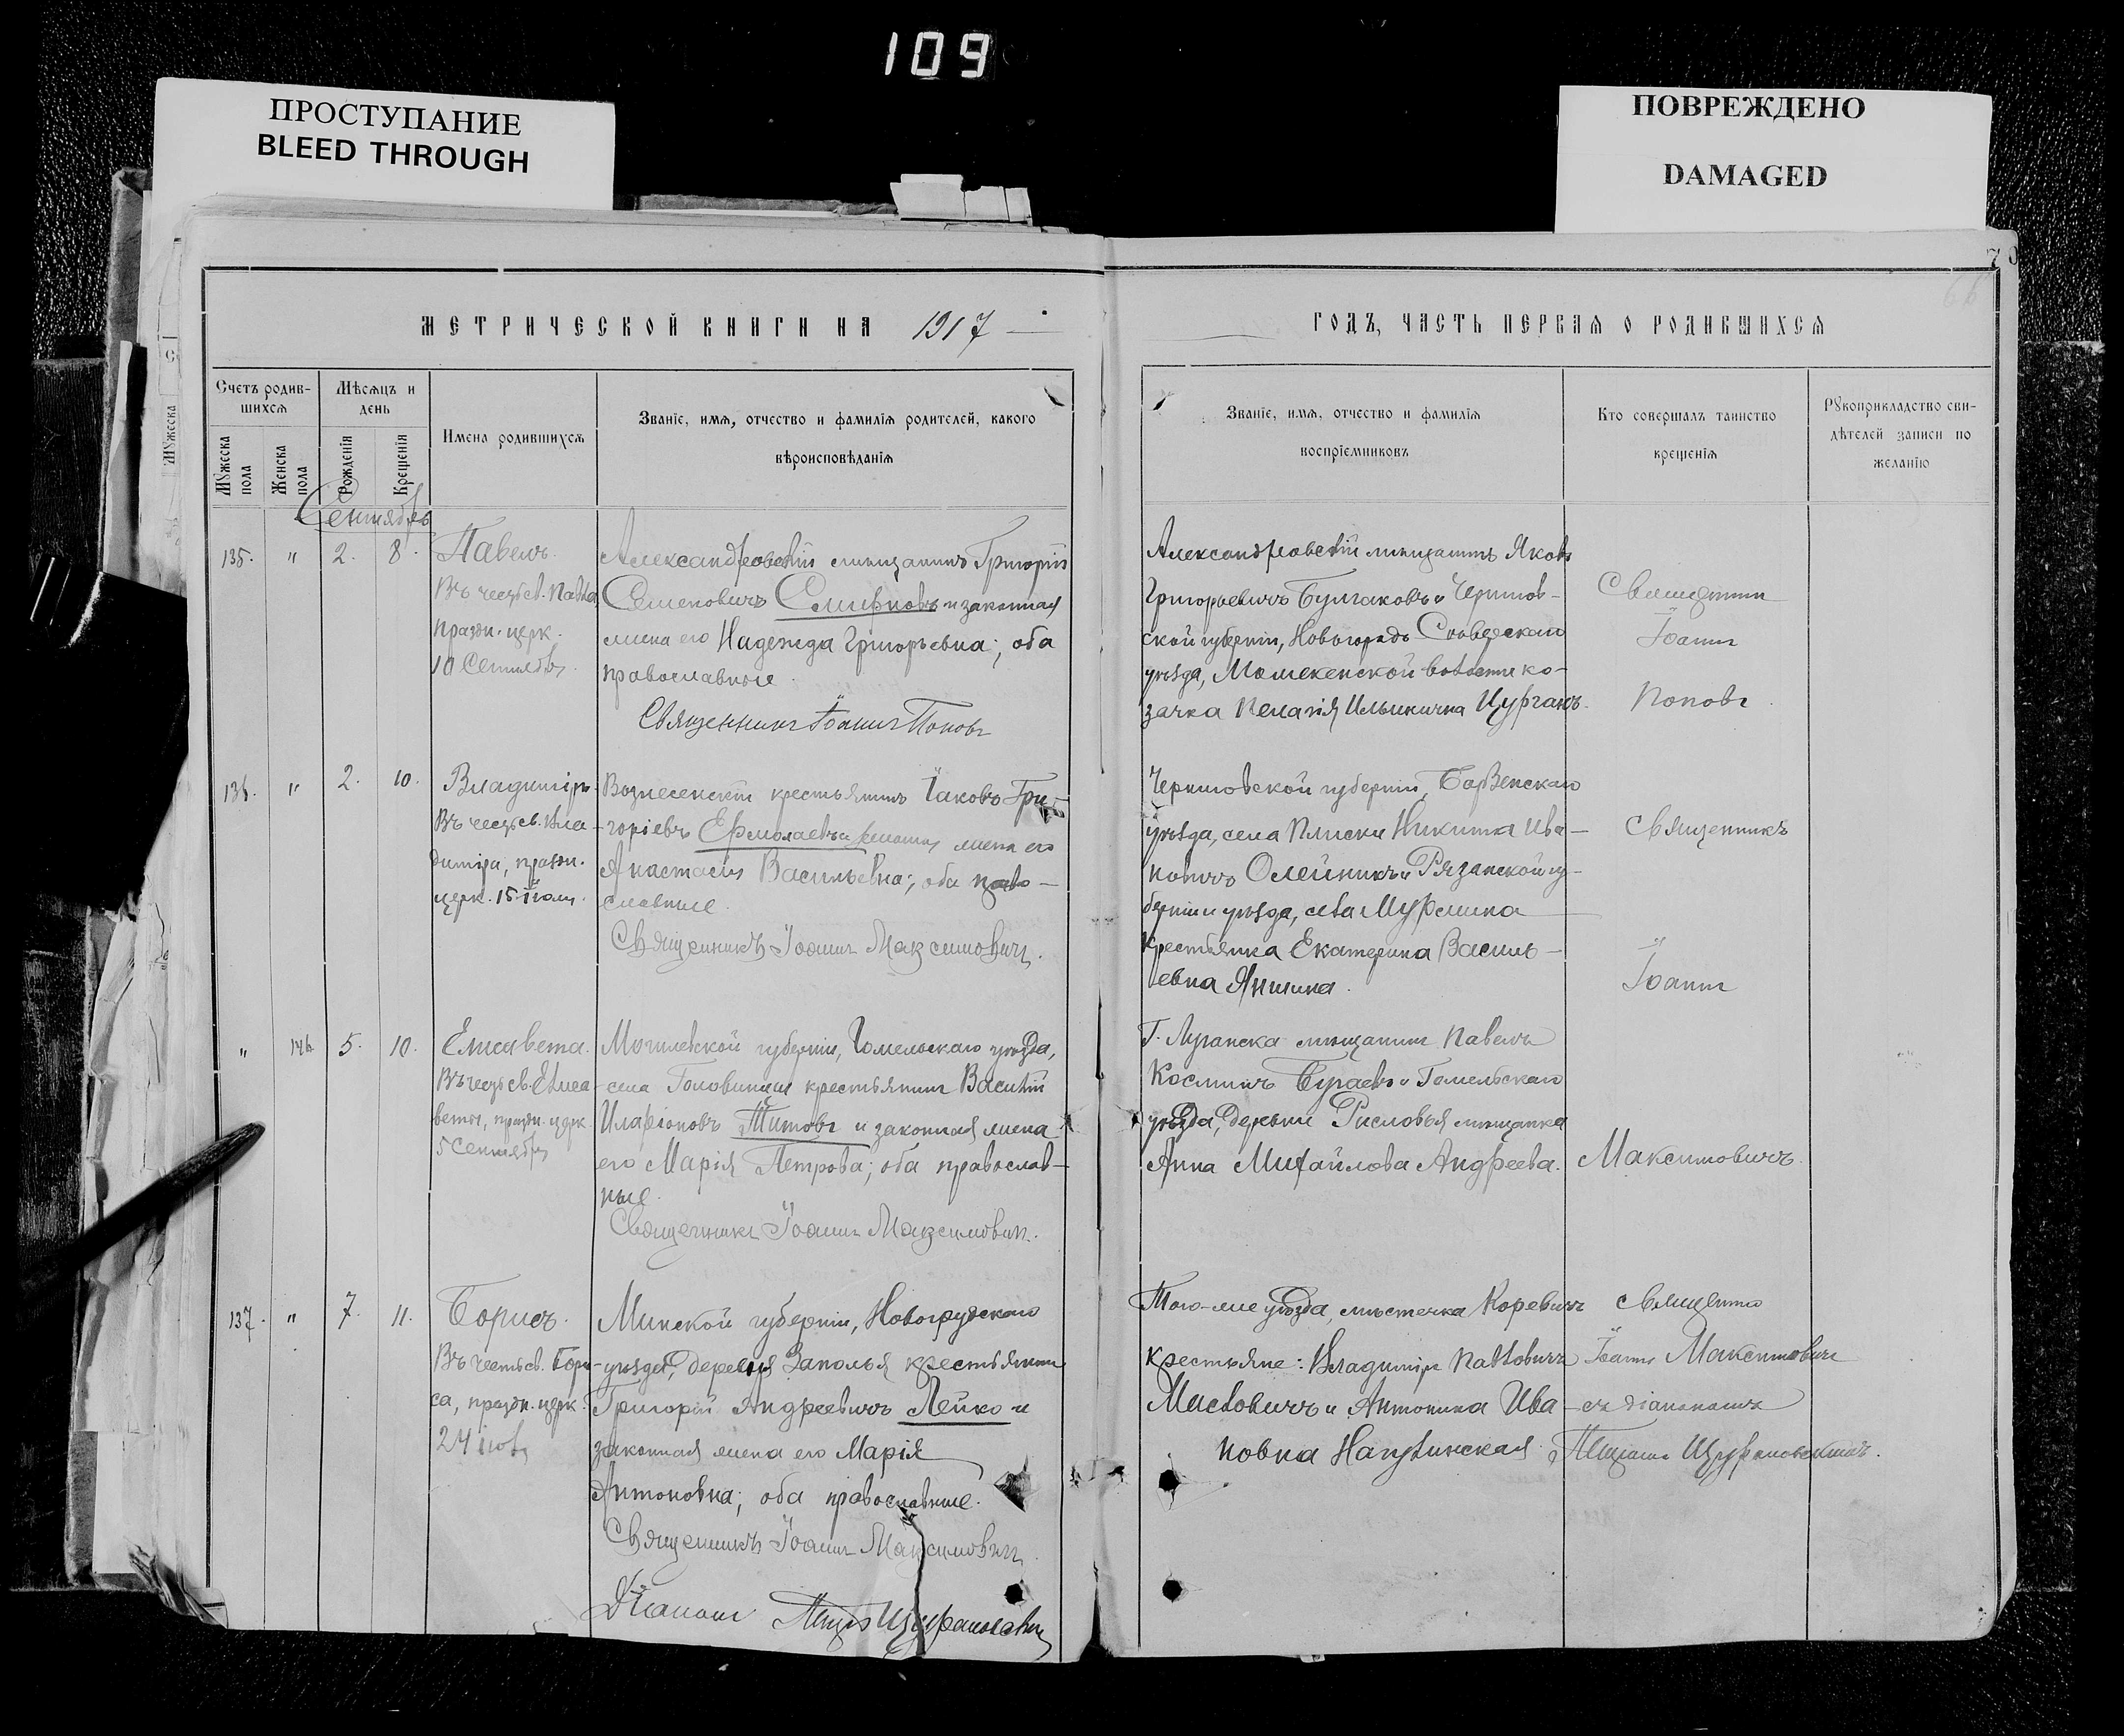 109
ПРОСТУПАНИЕ
BLEED THROUGH
ПОВРЕЖДЕНО
DAMAGED
МЕТРИЧЕСКОЙ КНИГИ НА 1917
Счетъ родившихся
Мужеска пола
Женска пола
Мѣсяцъ и день
Рожденія
Крещенія
Имена родившихся
Званіе, имя, отчество и фамилія родителей, какого
вѣроисповѣданія
Сентябрь
135. " 2. 8.
Павелъ.
Въ честь св. Павла,
празд. церк.
10 Сентября.
Александровскій мѣщанинъ Григорій
Семеновичъ Смирновъ и законная
жена его Надежда Григорьевна; оба
православные.
Священникъ Іоаннъ Поповъ
136. " 2. 10.
Владиміръ.
Въ честь св. Вла-
диміра, празд.
церк. 15 Іюля.
Вознесенскій крестьянинъ Іаковъ Гри-
горіевъ Ермолаевъ и законная жена его
Анастасія Васильевна; оба право-
славные.
Священникъ Іоаннъ Максимовичъ.
" 146 5. 10.
Елисавета.
Въ честь св. Елиса-
веты, празд. церк.
5 Сентября
Могилевской губерніи, Гомельскаго уѣзда,
села Головинцы крестьянинъ Василій
Иларіоновъ Титовъ и законная жена
его Марія Петрова; оба православ-
ные.
Священникъ Іоаннъ Максимовичъ.
137. " 7. 11.
Борисъ.
Въ честь св. Бори-
са, празд. церк.
24 іюля
Минской губерніи, Новогрудскаго
уѣзда, деревни Заполья крестьянинъ
Григорій Андреевичъ Лейко и
законная жена его Марія
Антоновна; оба православные.
Священникъ Іоаннъ Максимовичъ.
Діаконъ
ГОДЪ, ЧАСТЬ ПЕРВАЯ О РОДИВШИХСЯ
Званіе, имя, отчество и фамилія
воспріемниковъ
Кто совершалъ таинство
крещенія
Рукоприкладство сви-
дѣтелей записи по
желанію
Александровскій мѣщанинъ Яковъ
Григорьевичъ Булгаковъ и Чернигов-
ской губерніи, Новгородъ Сѣверскаго
уѣзда, волости ко-
зачка Пелагія Ильинична Цурганъ.
Священникъ
Іоаннъ
Поповъ
Черниговской губерніи, Борзенскаго
уѣзда, села Плиски Никита Ива-
новичъ Олейникъ и Рязанской гу-
берніи и уѣзда, села Мурмина
крестьянка Екатерина Василь-
евна Яншина.
Священникъ
Іоаннъ
Г. Луганска мѣщанинъ Павелъ
Косминъ Бугаевъ и Гомельскаго
уѣзда, деревни мѣщанка
Анна Михайлова Андреева.
Максимовичъ.
Того-же уѣзда, мѣстечка Коревичъ
крестьяне: Владиміръ Павловичъ
Мисловичъ и Антонина Ива-
новна
Священникъ
Іоаннъ Максимовичъ
съ діакономъ